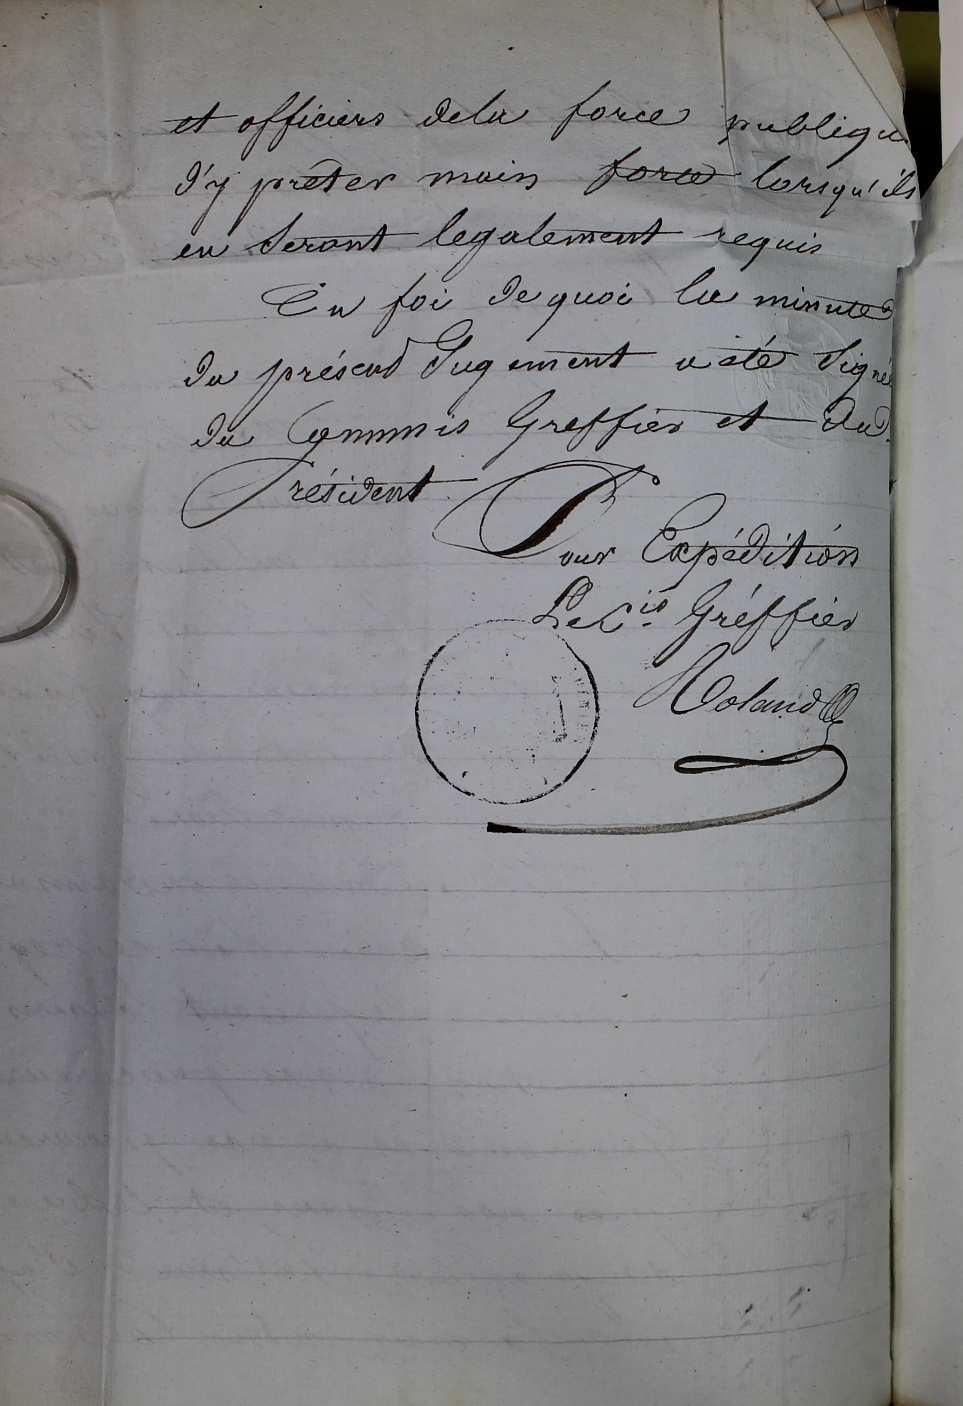 et officiers dela force publique
d'y prêter main force lorsqu'ils
en seront legalement requis
En foi de quoi la minute
du présent Jugement a été Signé
du Commis Greffier et du
Président
Pour Expédition
Le Cis. Gréffier